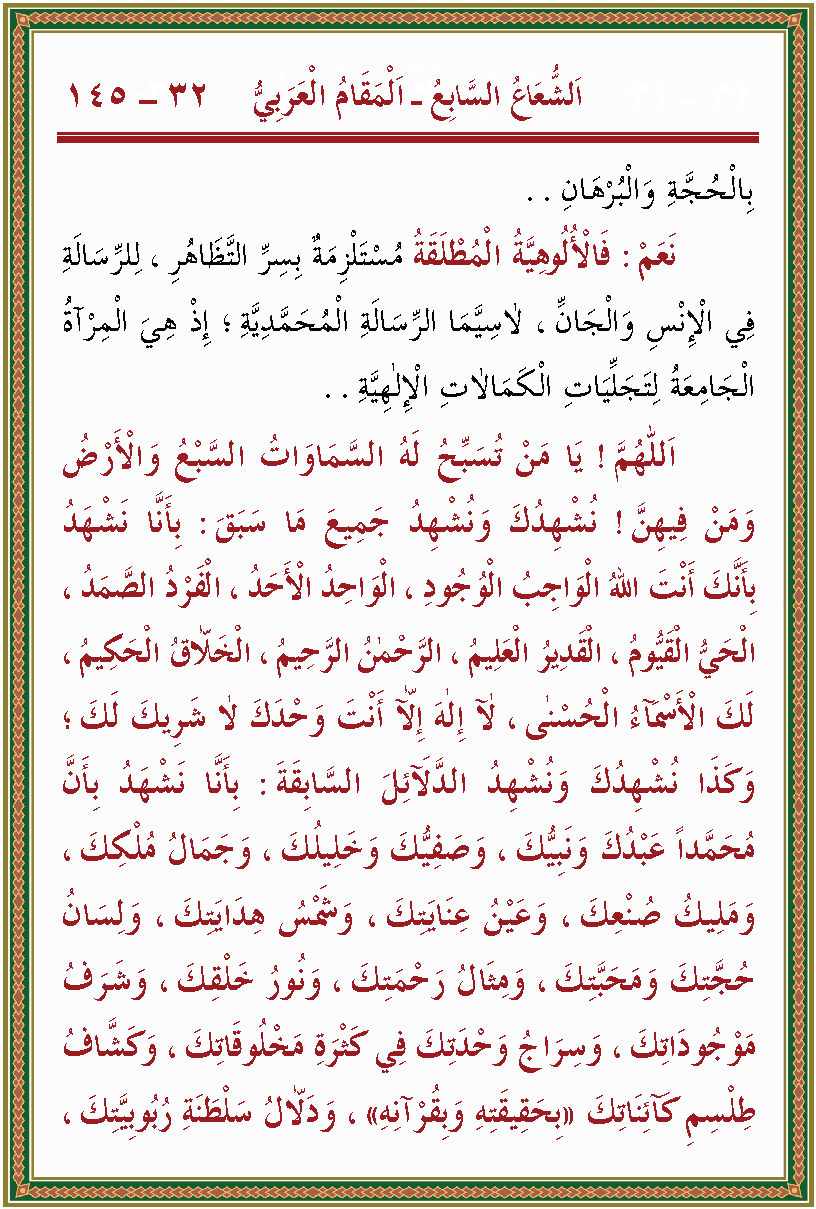 اَلشُّعَاعُ السَّابِعُ ـ اَلْمَقَامُ الْعَرَبِيُّ ٣٢ ـ ١٤٥
بِالْحُجَّةِ وَالْبُرْهَانِ . .
نَعَمْ : فَالْأُلُوهِيَّةُ الْمُطْلَقَةُ مُسْتَلْزِمَةٌ بِسِرِّ التَّظَاهُرِ ، لِلرِّسَالَةِ
فِي الْإِنْسِ وَالْجَانِّ ، لَاسِيَّمَا الرِّسَالَةِ الْمُحَمَّدِيَّةِ ؛ إِذْ هِيَ الْمِرْآةُ
الْجَامِعَةُ لِتَجَلِّيَاتِ الْكَمَالَاتِ الْإِلٰهِيَّةِ . .
اَللّٰهُمَّ ! يَا مَنْ تُسَبِّحُ لَهُ السَّمَاوَاتُ السَّبْعُ وَالْأَرْضُ
وَمَنْ فِيهِنَّ ! نُشْهِدُكَ وَنُشْهِدُ جَمِيعَ مَا سَبَقَ : بِأَنَّا نَشْهَدُ
بِأَنَّكَ أَنْتَ اللهُ الْوَاجِبُ الْوُجُودِ ، الْوَاحِدُ الْأَحَدُ ، الْفَرْدُ الصَّمَدُ ،
الْحَيُّ الْقَيُّومُ ، الْقَدِيرُ الْعَلِيمُ ، الرَّحْمٰنُ الرَّحِيمُ ، الْخَلَّاقُ الْحَكِيمُ ،
لَكَ الْأَسْمَآءُ الْحُسْنٰى ، لَآ إِلٰهَ إِلَّآ أَنْتَ وَحْدَكَ لَا شَرِيكَ لَكَ ؛
وَكَذَا نُشْهِدُكَ وَنُشْهِدُ الدَّلَآئِلَ السَّابِقَةَ : بِأَنَّا نَشْهَدُ بِأَنَّ
مُحَمَّداً عَبْدُكَ وَنَبِيُّكَ ، وَصَفِيُّكَ وَخَلِيلُكَ ، وَجَمَالُ مُلْكِكَ ،
وَمَلِيكُ صُنْعِكَ ، وَعَيْنُ عِنَايَتِكَ ، وَشَمْسُ هِدَايَتِكَ ، وَلِسَانُ
حُجَّتِكَ وَمَحَبَّتِكَ ، وَمِثَالُ رَحْمَتِكَ ، وَنُورُ خَلْقِكَ ، وَشَرَفُ
مَوْجُودَاتِكَ ، وَسِرَاجُ وَحْدَتِكَ فِي كَثْرَةِ مَخْلُوقَاتِكَ ، وَكَشَّافُ
طِلْسِمِ كَآئِنَاتِكَ «بِحَقِيقَتِهِ وَبِقُرْآنِهِ» ، وَدَلَّالُ سَلْطَنَةِ رُبُوبِيَّتِكَ ،